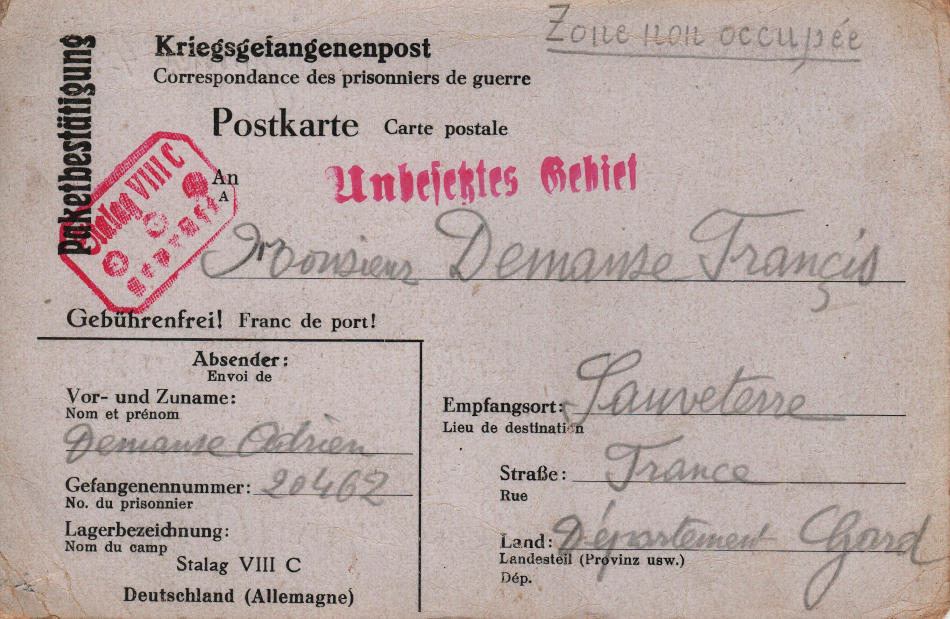 Zone non occupée
Paketbestätigung
Kriegsgefangenenpost
Correspondance des prisonniers de guerre
Postkarte Carte postale
Unbesetztes Gebiet
Stalag VIII C
Geprüft
An
A
Monsieur Demanse Françis
Gebührenfrei! Franc de port!
Absender:
Envoi de
Vor- und Zuname:
Nom et prénom
Demanse Adrien
Gefangenennummer: 20462
No. du prisonnier
Lagerbezeichnung:
Nom du camp
Stalag VIII C
Deutschland (Allemagne)
Empfangsort: Sauveterre
Lieu de destination
Straße: France
Rue
Land: Département Gard
Landesteil (Provinz usw.)
Dép.